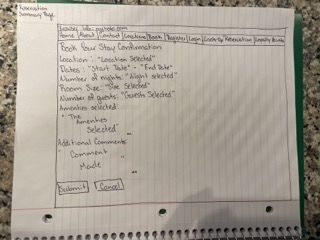 Reservation
Summary Page
Home | About | Contact | Locations | Book | Register | Login | Look-Up Reservation | Loyalty Points
Book Your Stay Confirmation
Location : "Location Selected"
Dates : "Start Date" - "End Date"
Number of nights: "Night selected"
Room Size: "Size Selected"
Number of guests: "Guests Selected"
Amenities selected:
" The
Amenities
Selected "
Additional Comments:
" Comment
Made "
Submit Cancel